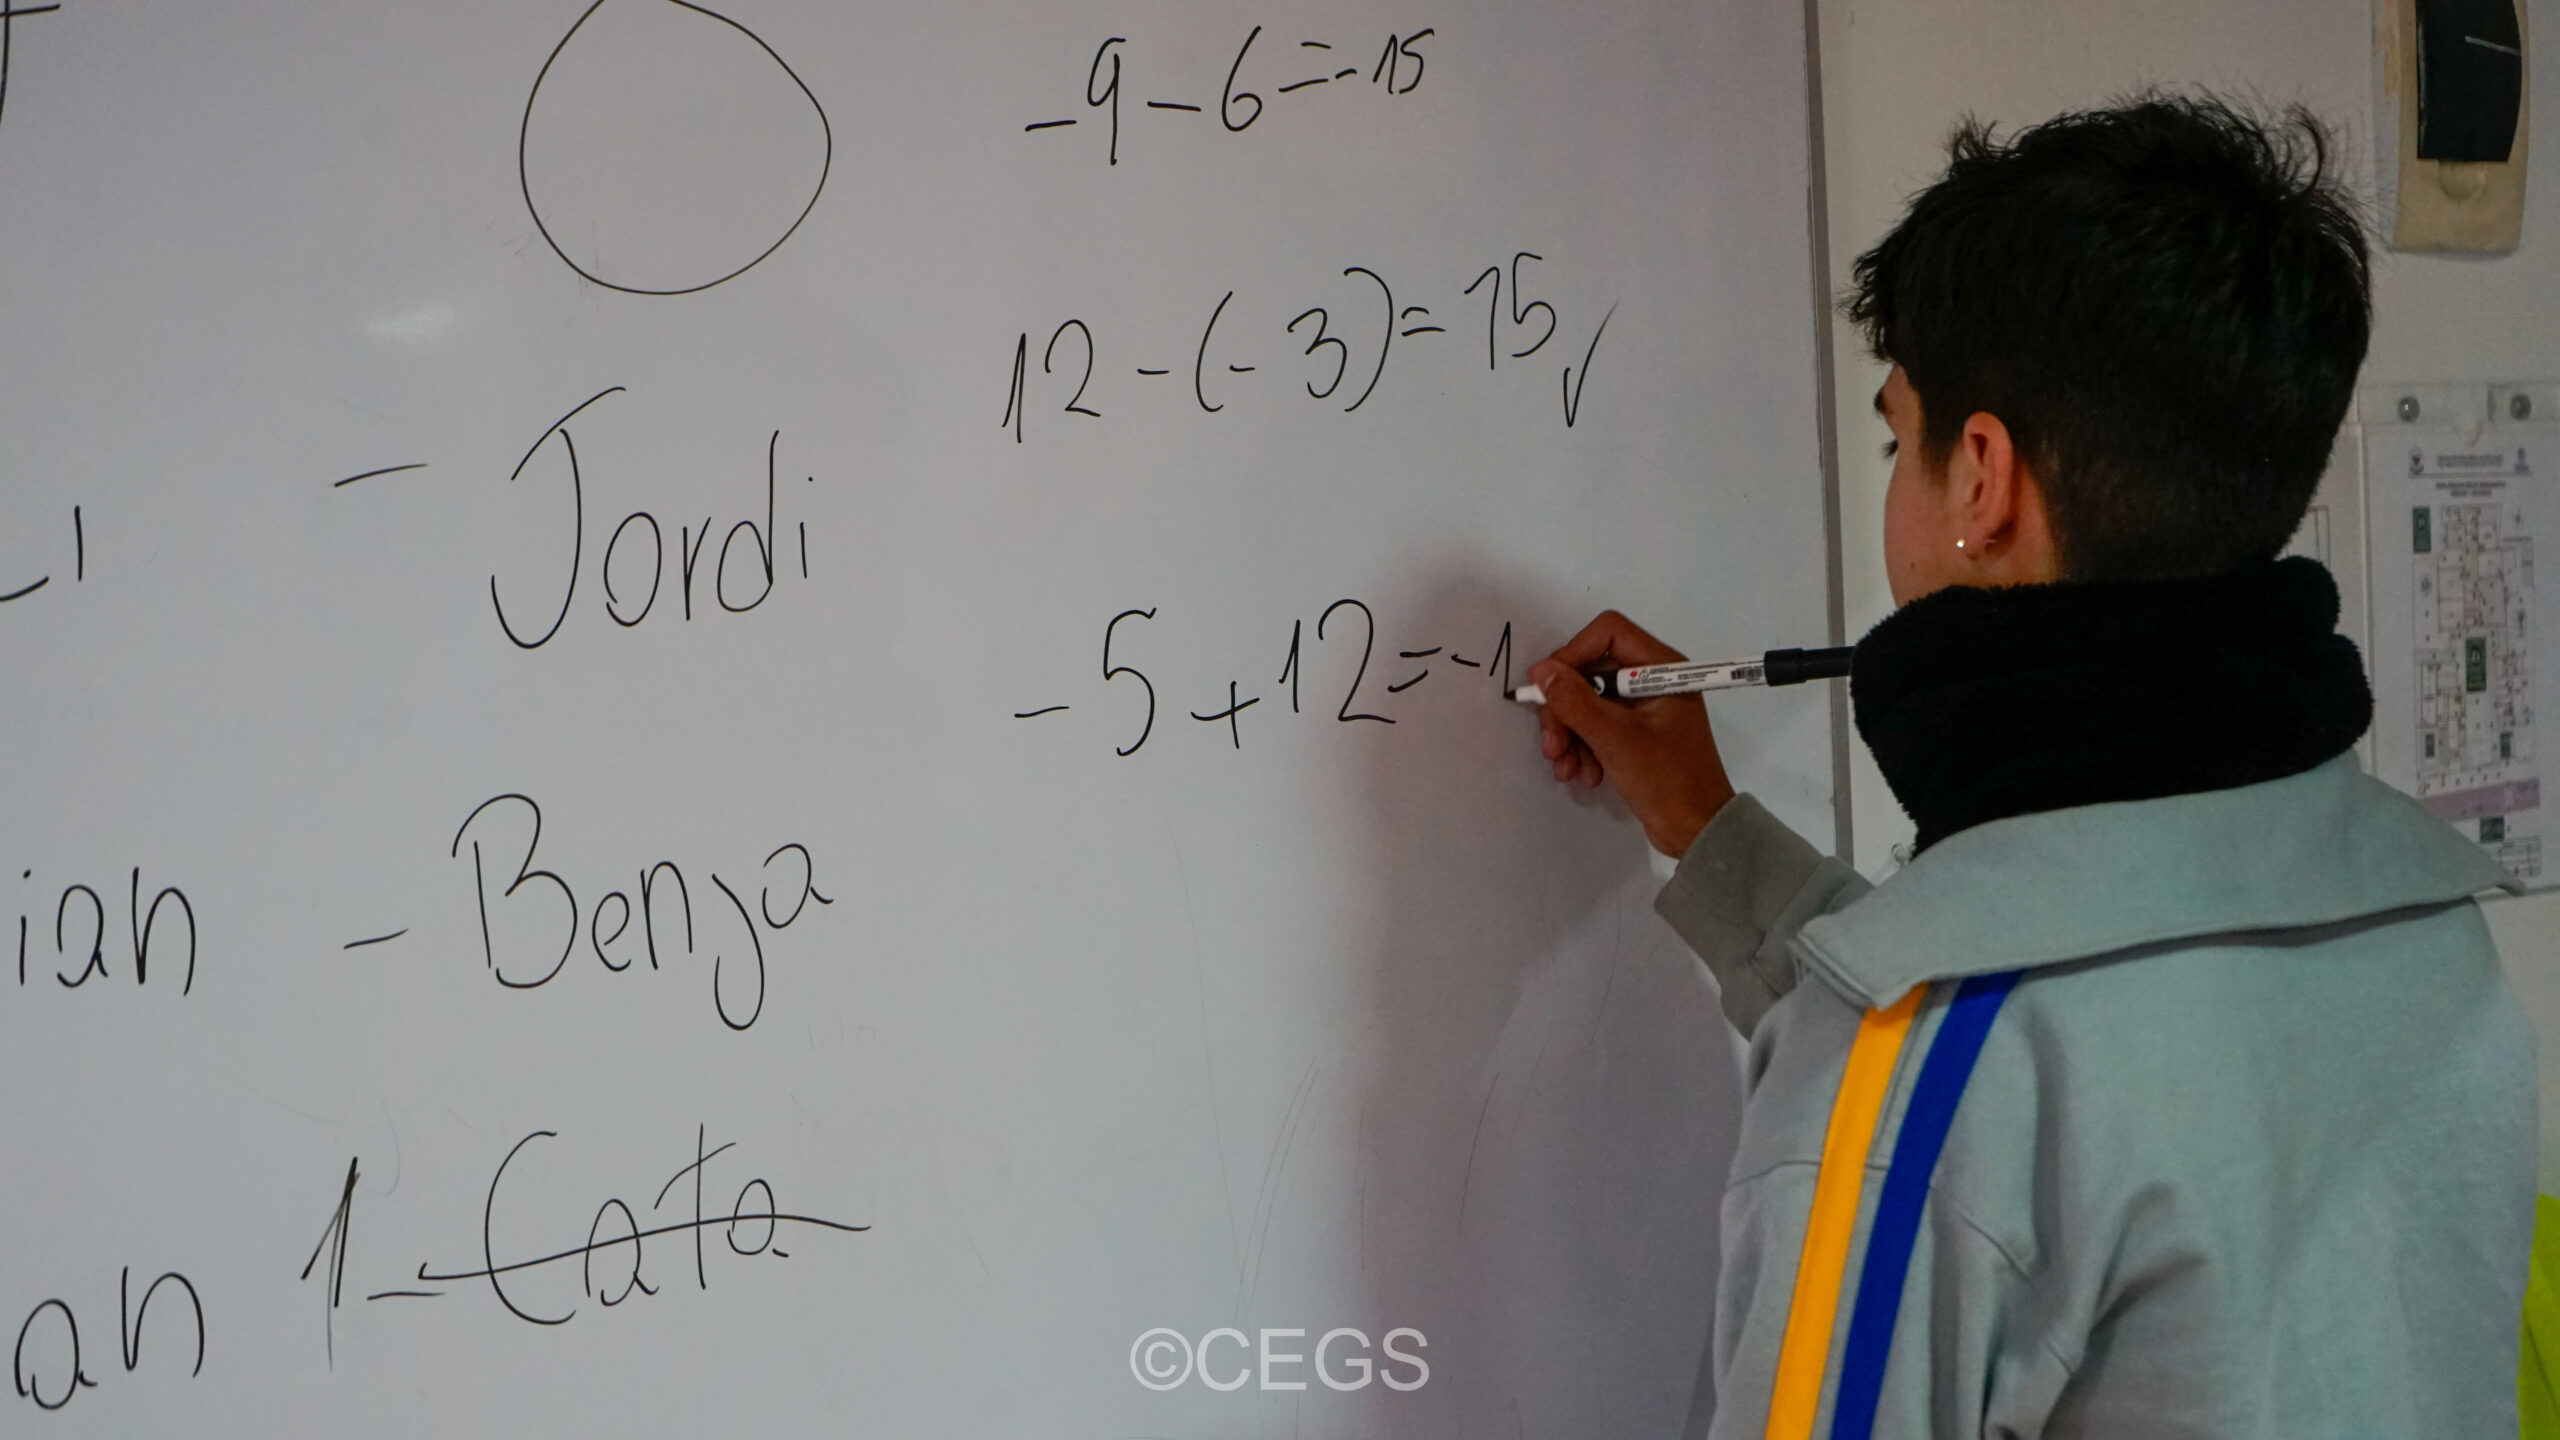 -9-6=-15
12-(-3)=15✓
-5+12=-1
- Jordi
- Benja
ian
1-Cata
an
©CEGS